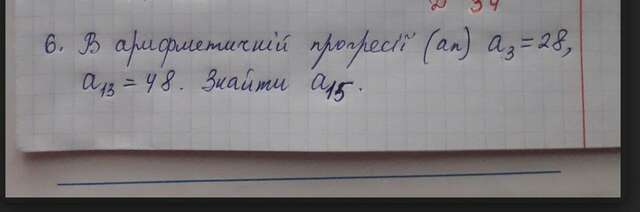 6. В арифметичній прогресії (an) a₃ = 28,
a₁₃ = 48. Знайти a₁₅.